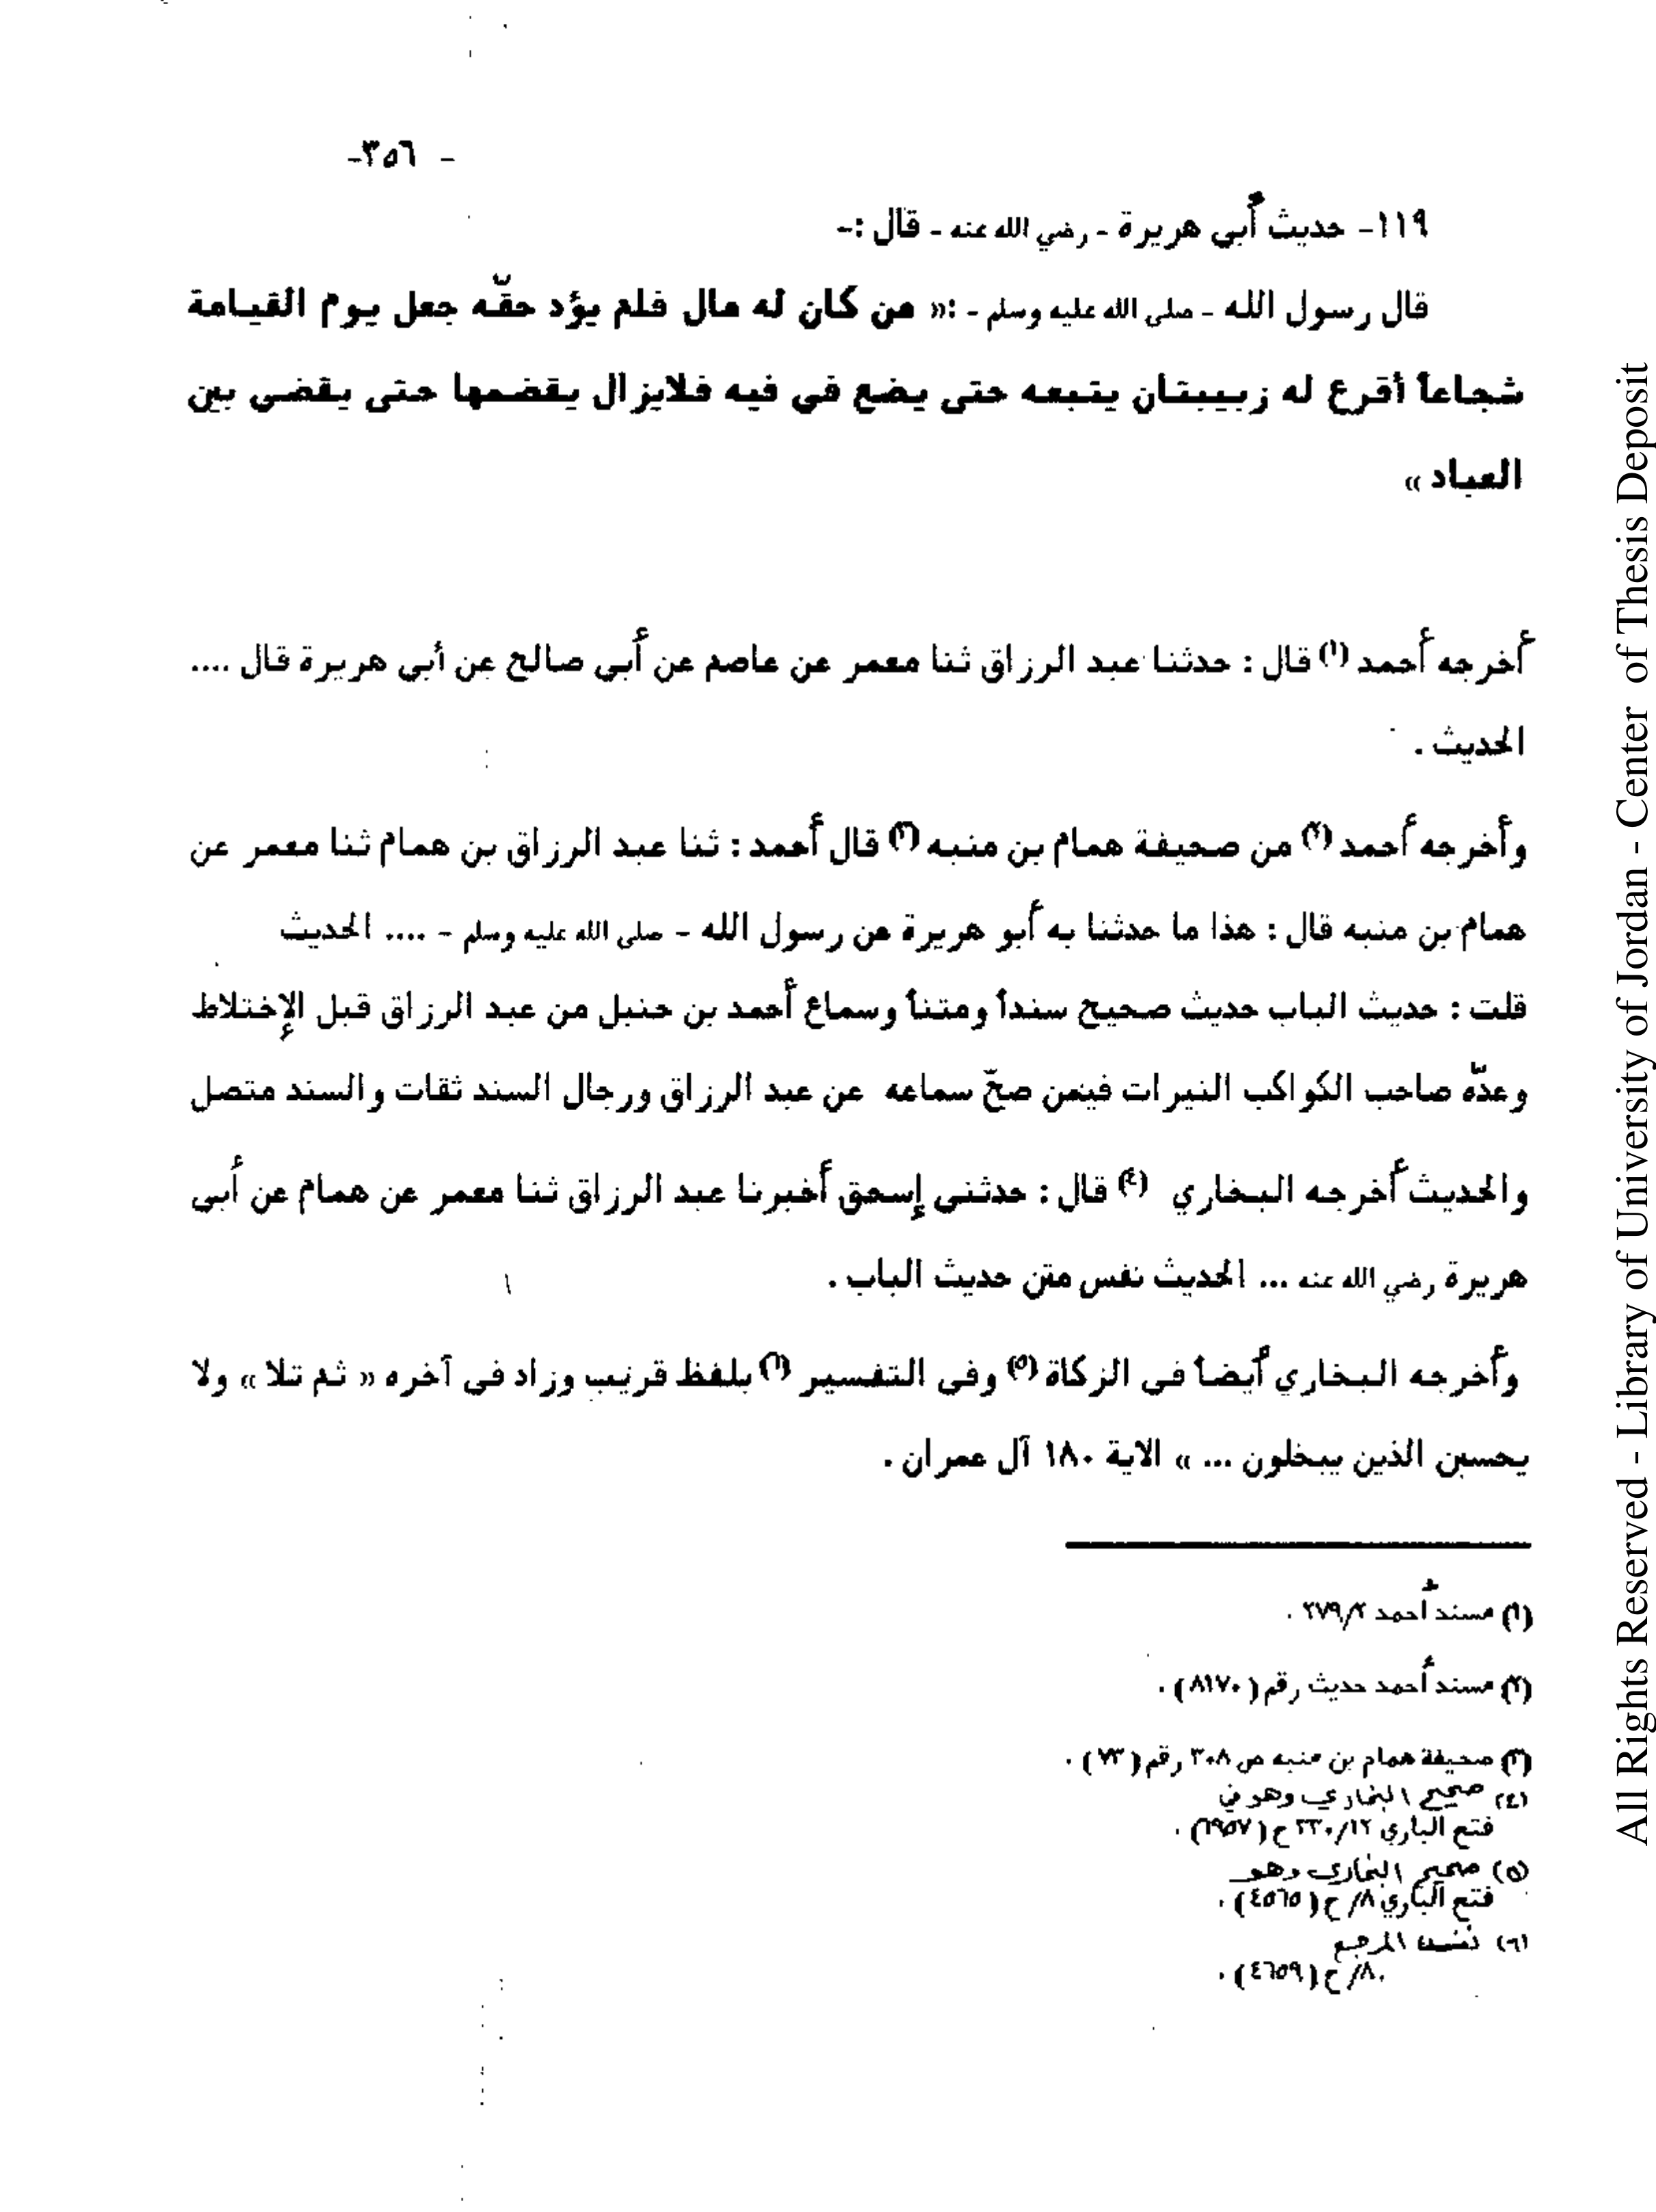 - ٣٥٦-
١١٩- حديث أبي هريرة - رضي الله عنه - قال :-
قال رسول الله - صلى الله عليه وسلم - :« من كان له مال فلم يؤد حقّه جعل يوم القيامة
شجاعاً أقرع له زبيبتان يتبعه حتى يضع في فيه فلايزال يقضمها حتى يقضي بين
العباد »
أخرجه أحمد (١) قال : حدثنا عبد الرزاق ثنا معمر عن عاصم عن أبي صالح عن أبي هريرة قال ....
الحديث .
وأخرجه أحمد (٢) من صحيفة همام بن منبه (٣) قال أحمد : ثنا عبد الرزاق بن همام ثنا معمر عن
همام بن منبه قال : هذا ما حدثنا به أبو هريرة عن رسول الله - صلى الله عليه وسلم - .... الحديث
قلت : حديث الباب حديث صحيح سنداً ومتناً وسماع أحمد بن حنبل من عبد الرزاق قبل الإختلاط
وعدّه صاحب الكواكب النيرات فيمن صحّ سماعه عن عبد الرزاق ورجال السند ثقات والسند متصل
والحديث أخرجه البخاري (٤) قال : حدثنى إسحق أخبرنا عبد الرزاق ثنا معمر عن همام عن أبى
هريرة رضي الله عنه ... الحديث نفس متن حديث الباب .
وأخرجه البخاري أيضاً فى الزكاة (٥) وفى التفسير (٦) بلفظ قريب وزاد فى آخره « ثم تلا » ولا
يحسبن الذين يبخلون ... » الاية ١٨٠ آل عمران .
(١) مسند أحمد ٢٧٩/٢ .
(٢) مسند أحمد حديث رقم ( ٨١٧٠ ) .
(٣) صحيفة همام بن منبه ص ٣٠٨ رقم ( ٧٣ ) .
(٤) صحيح البخاري وهو في
فتح الباري ٣٣٠/١٢ ح ( ٦٩٥٧ ) .
(٥) صحيح البخاري وهو
فتح الباري ٨/ ح ( ٤٥٦٥ ) .
(٦) نفس المرجع
٨/ ح ( ٤٦٥٩ ) .
All Rights Reserved - Library of University of Jordan - Center of Thesis Deposit